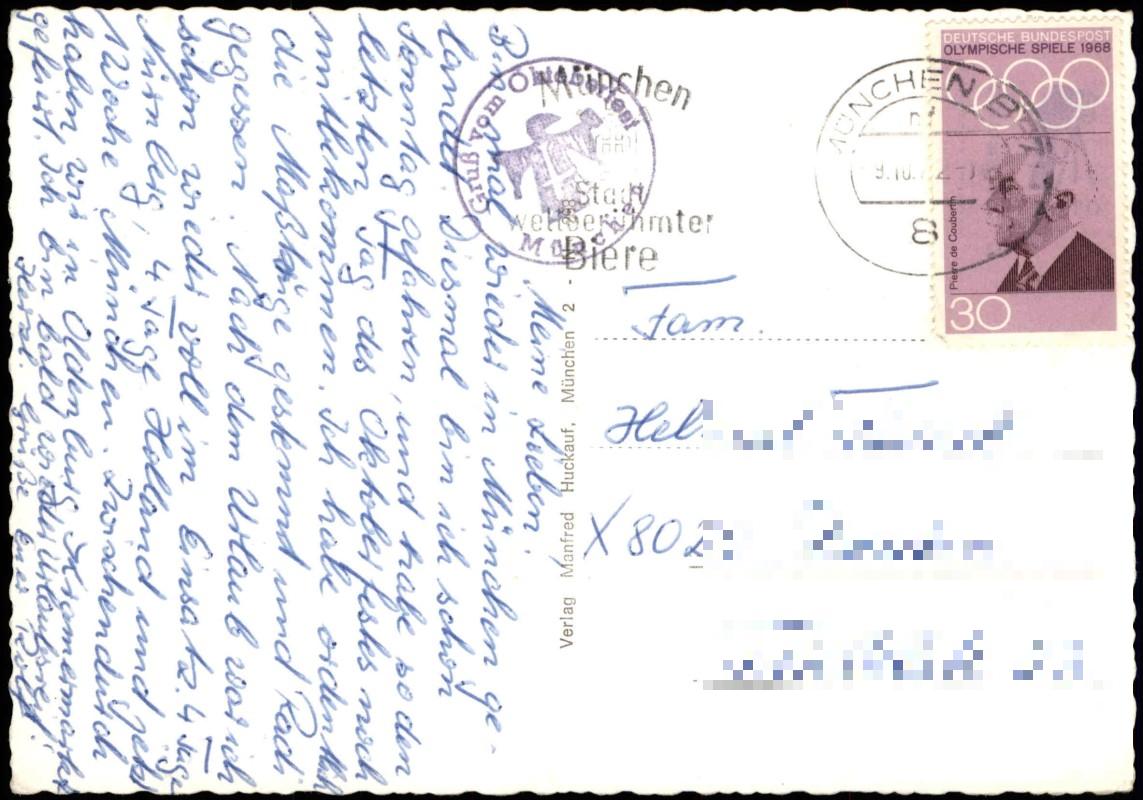 Meine Lieben!
Bin mal wieder in München ge-
landet. Diesmal bin ich schon
Sonntag gefahren, und habe so den
letzten Tag des Oktoberfestes noch
mitbekommen. Ich habe ordentlich
die Maßkrüge gestemmt und Radi
gegessen. Nach dem Urlaub war ich
schon wieder voll im Einsatz. 4 Tage
Nürnberg, 4 Tage Holland und jetzt
1 Woche München. Zwischendurch
haben wir in Oldenburg Kramermarkt
gefeiert. Ich bin bald wieder urlaubsreif.
Herzl. Grüße Euer Rolf.
Gruß vom Oktoberfest
München
München
Stadt
weltberühmter
Biere
MÜNCHEN
8
DEUTSCHE BUNDESPOST
OLYMPISCHE SPIELE 1968
Pierre de Coubertin
30
Verlag Manfred Huckauf, München 2 -
Fam.
Hel
X 802